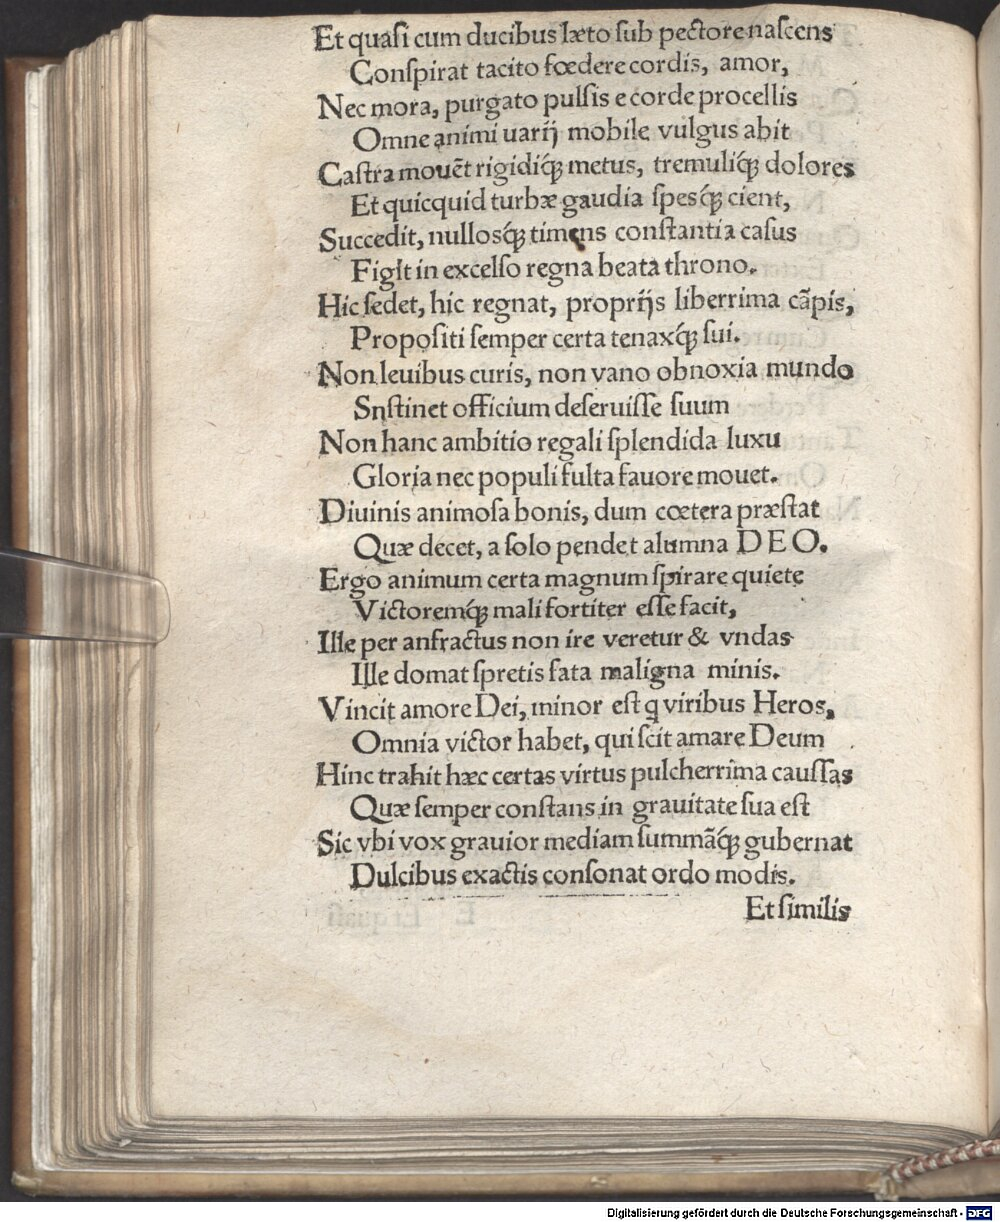 Et quasi cum ducibus læto sub pectore nascens
Conſpirat tacito fœdere cordis, amor,
Nec mora, purgato pulſis e corde procellis
Omne animi uarij mobile vulgus abit
Caſtra mouēt rigidiq́ꝫ metus, tremuliq́ꝫ dolores
Et quicquid turbæ gaudia ſpesq́ꝫ cient,
Succedit, nullosq́ꝫ timens conſtantia caſus
Figit in excelſo regna beata throno.
Hic ſedet, hic regnat, proprijs liberrima cāpis,
Propoſiti ſemper certa tenaxq́ꝫ ſui.
Non leuibus curis, non vano obnoxia mundo
Snſtinet officium deſeruiſſe ſuum
Non hanc ambitio regali ſplendida luxu
Gloria nec populi fulta fauore mouet.
Diuinis animoſa bonis, dum cœtera præſtat
Quæ decet, a ſolo pendet alumna DEO.
Ergo animum certa magnum ſpirare quiete
Victoremq́ꝫ mali fortiter eſſe facit,
Ille per anfractus non ire veretur & vndas
Ille domat ſpretis fata maligna minis.
Vincit amore Dei, minor eſt q viribus Heros,
Omnia victor habet, qui ſcit amare Deum
Hinc trahit hæc certas virtus pulcherrima cauſſas
Quæ ſemper conſtans in grauitate ſua eſt
Sic vbi vox grauior mediam ſummāq́ꝫ gubernat
Dulcibus exactis conſonat ordo modis.
Et ſimilis
Digitalisierung gefördert durch die Deutsche Forschungsgemeinschaft - DFG